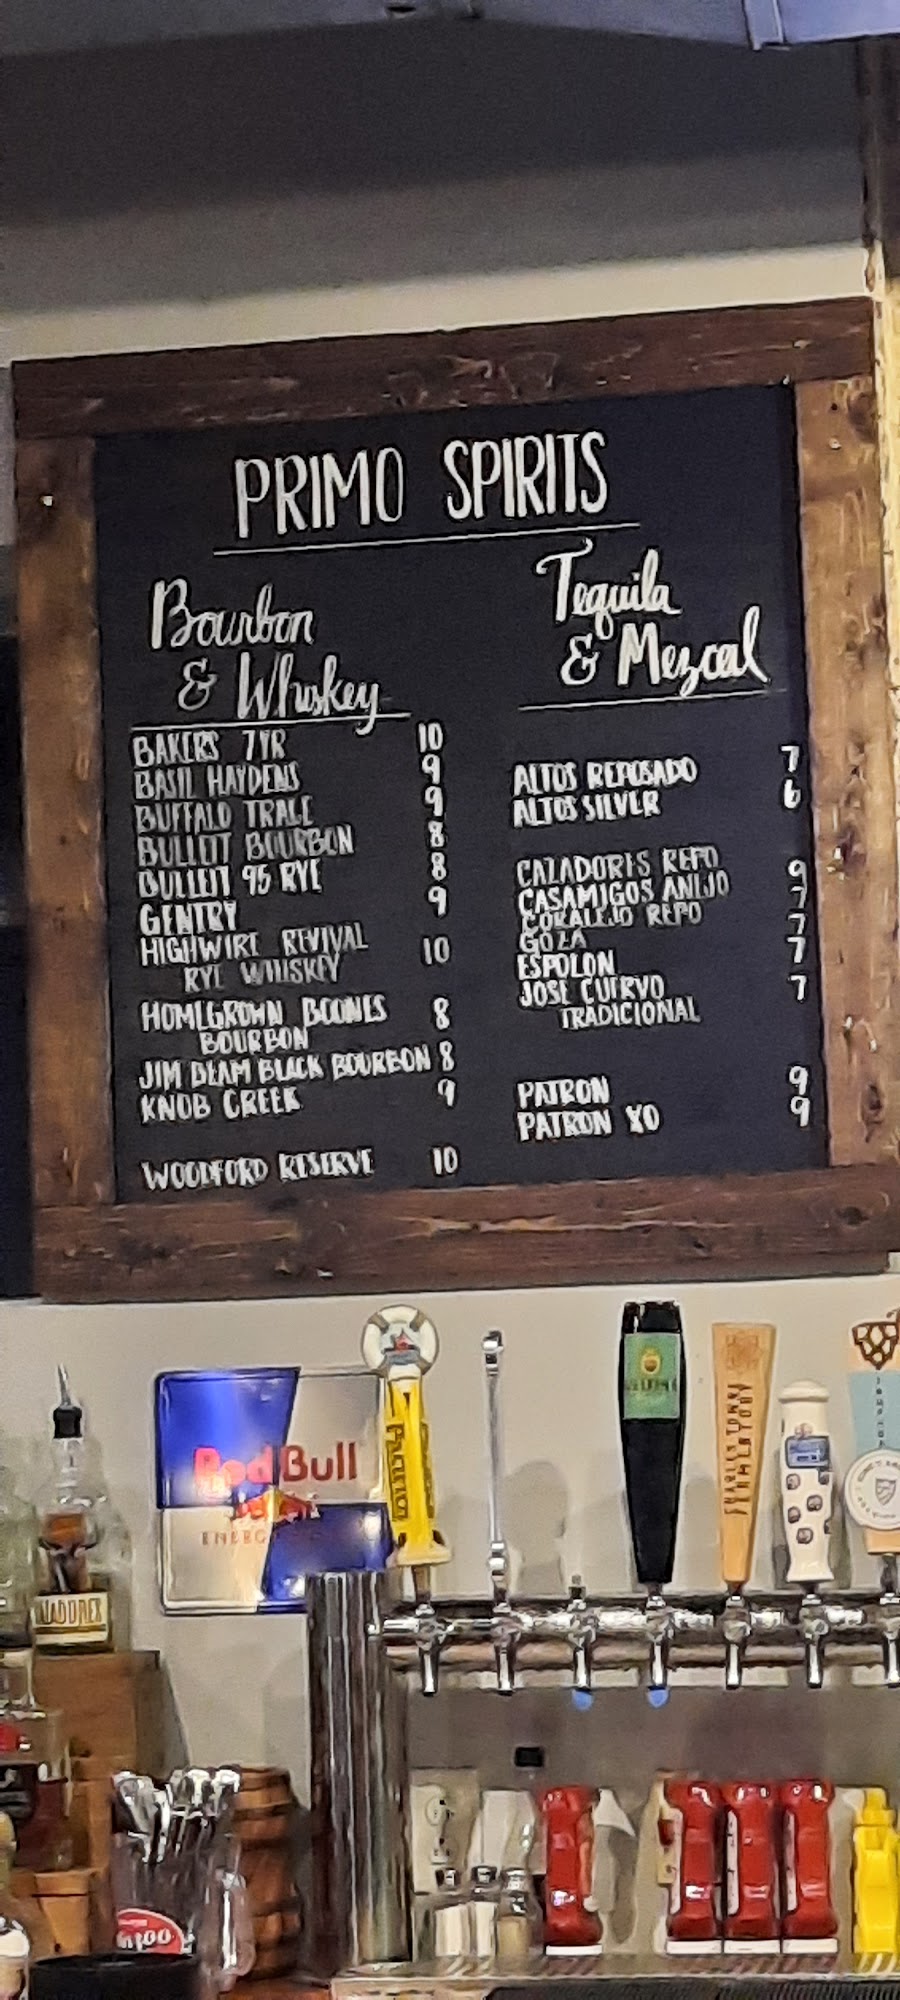 PRIMO SPIRITS
Bourbon
& Whiskey
BAKERS 7YR 10
BASIL HAYDENS 9
BUFFALO TRACE 9
BULLEIT BOURBON 8
BULLEIT 95 RYE 8
GENTRY 9
HIGHWIRE REVIVAL
RYE WHISKEY 10
HOMEGROWN BOONES 8
BOURBON
JIM BEAM BLACK BOURBON 8
KNOB CREEK 9
WOODFORD RESERVE 10
Tequila
& Mezcal
ALTOS REPOSADO 7
ALTOS SILVER 6
CAZADORES REPO
CASAMIGOS ANEJO 9
CORALEJO REPO 7
GOZA 7
ESPOLON 7
JOSE CUERVO 7
TRADICIONAL
PATRON 9
PATRON XO 9
Red Bull
ENERGY
PACIFICO
CHARLES TOWNE
FERMENTORY